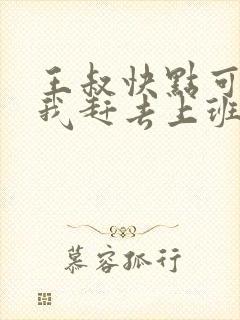 王叔快點可
我赶去上班
慕容孤行